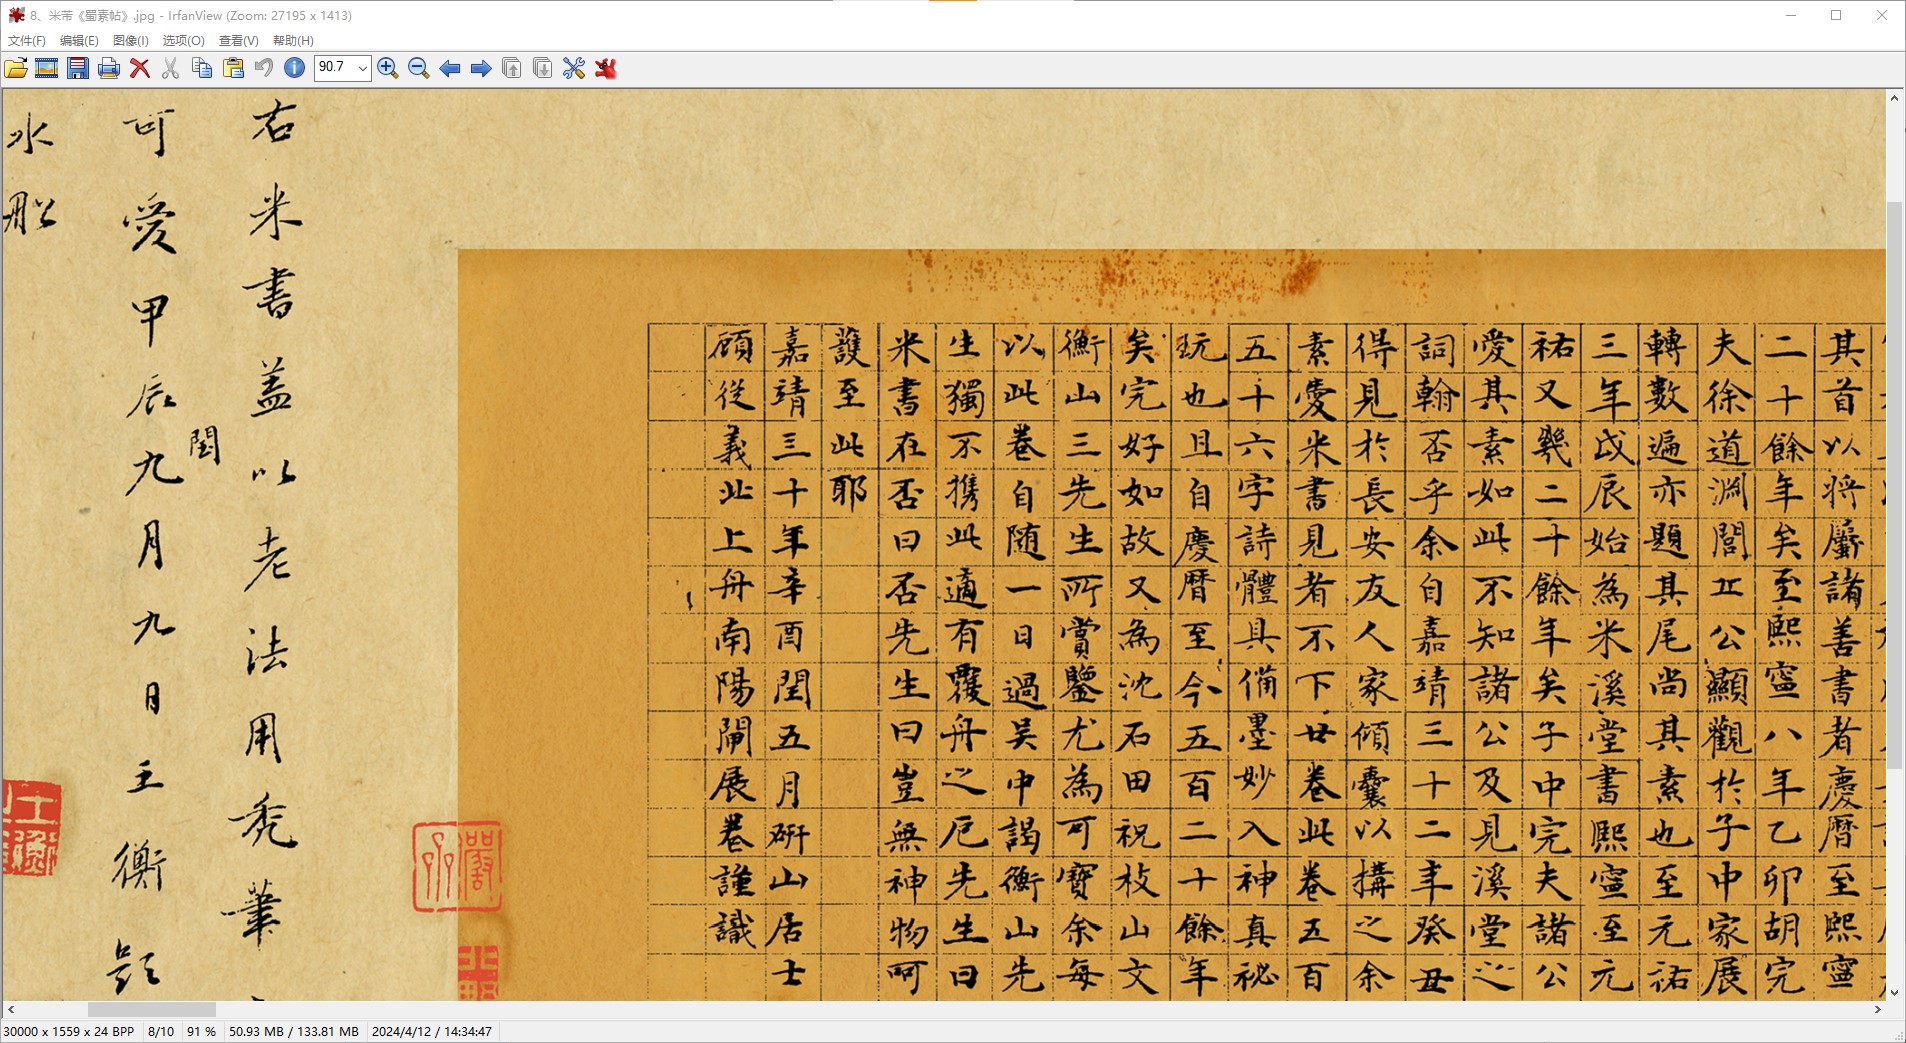 8、米芾《蜀素帖》.jpg - IrfanView (Zoom: 27195 x 1413)
文件(F) 编辑(E) 图像(I) 选项(O) 查看(V) 帮助(H)
90.7
其首以將屬諸善書者慶曆至熙寧
二十餘年矣至熙寧八年乙卯胡完
夫徐道淵閭丘公顯觀於子中家展
轉數遍亦題其尾尚其素也至元祐
三年戊辰始為米溪堂書熙寧至元
祐又幾二十餘年矣子中完夫諸公
愛其素如此不知諸公及見溪堂之
詞翰否乎余自嘉靖三十二年癸丑
得見於長安友人家傾囊以購之余
素愛米書見者不下廿卷此卷五百
五十六字詩體具備墨妙入神真秘
玩也且自慶曆至今五百二十餘年
矣完好如故又為沈石田祝枝山文
衡山三先生所賞鑒尤為可寶余每
以此卷自随一日過吴中謁衡山先
生獨不携此適有覆舟之厄先生曰
米書在否曰否先生曰豈無神物呵
護至此耶
嘉靖三十年辛酉閏五月研山居士
顧從義北上舟南陽閘展卷謹識
右米書蓋以老法用禿筆
可愛甲辰閏九月九日王衡題
水船
30000 x 1559 x 24 BPP 8/10 91 % 50.93 MB / 133.81 MB 2024/4/12 / 14:34:47